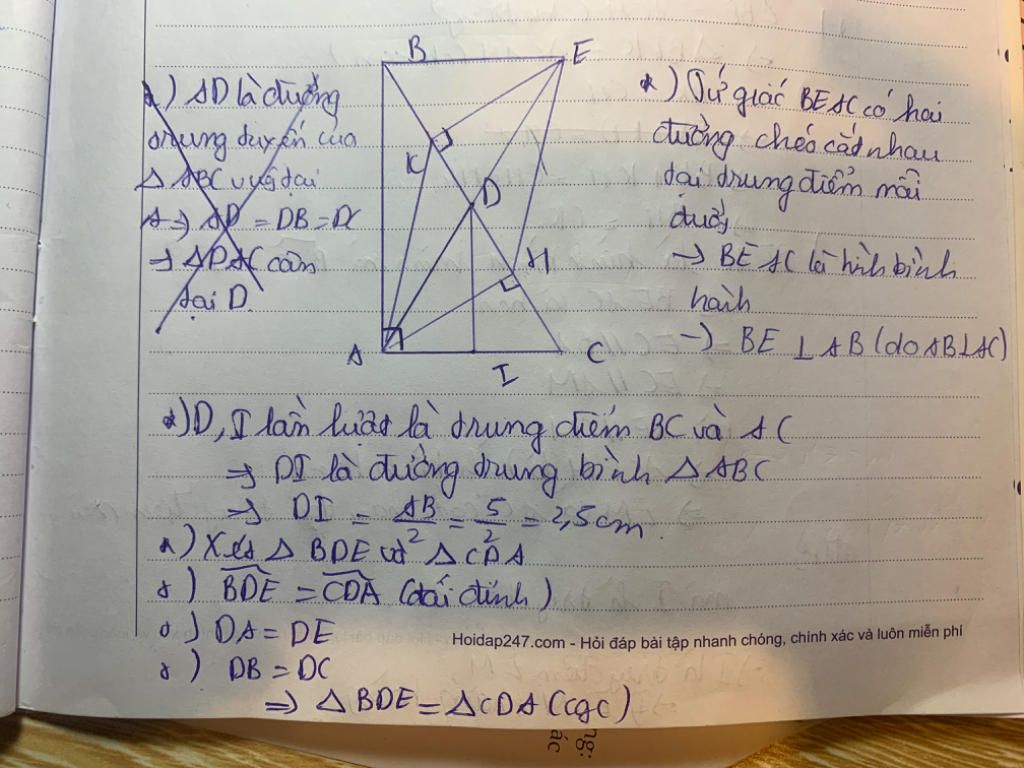 B
E
K
D
H
A
I
C
*) AD là đường
trung tuyến của
△ ABC vuô tại
A ⇒ AD = DB = DC
⇒ △DAC cân
tại D.
*) Tứ giác BEAC có hai
đường chéo cắt nhau
tại trung điểm mỗi
đườg
→ BEAC là hình bình
hành
→) BE ⊥ AB (do AB⊥AC)
*) D, I lần lượt là trung điểm BC và AC
⇒ DI là đường trung bình △ ABC
⇒ DI = AB/2 = 5/2 = 2,5 cm.
*) Xét △ BDE và △ CDA
) BDE = CDA (đối đỉnh)
) DA = DE
) DB = DC
⇒ △ BDE = △CDA (cgc)
Hoidap247.com - Hỏi đáp bài tập nhanh chóng, chính xác và luôn miễn phí
ng:
ác